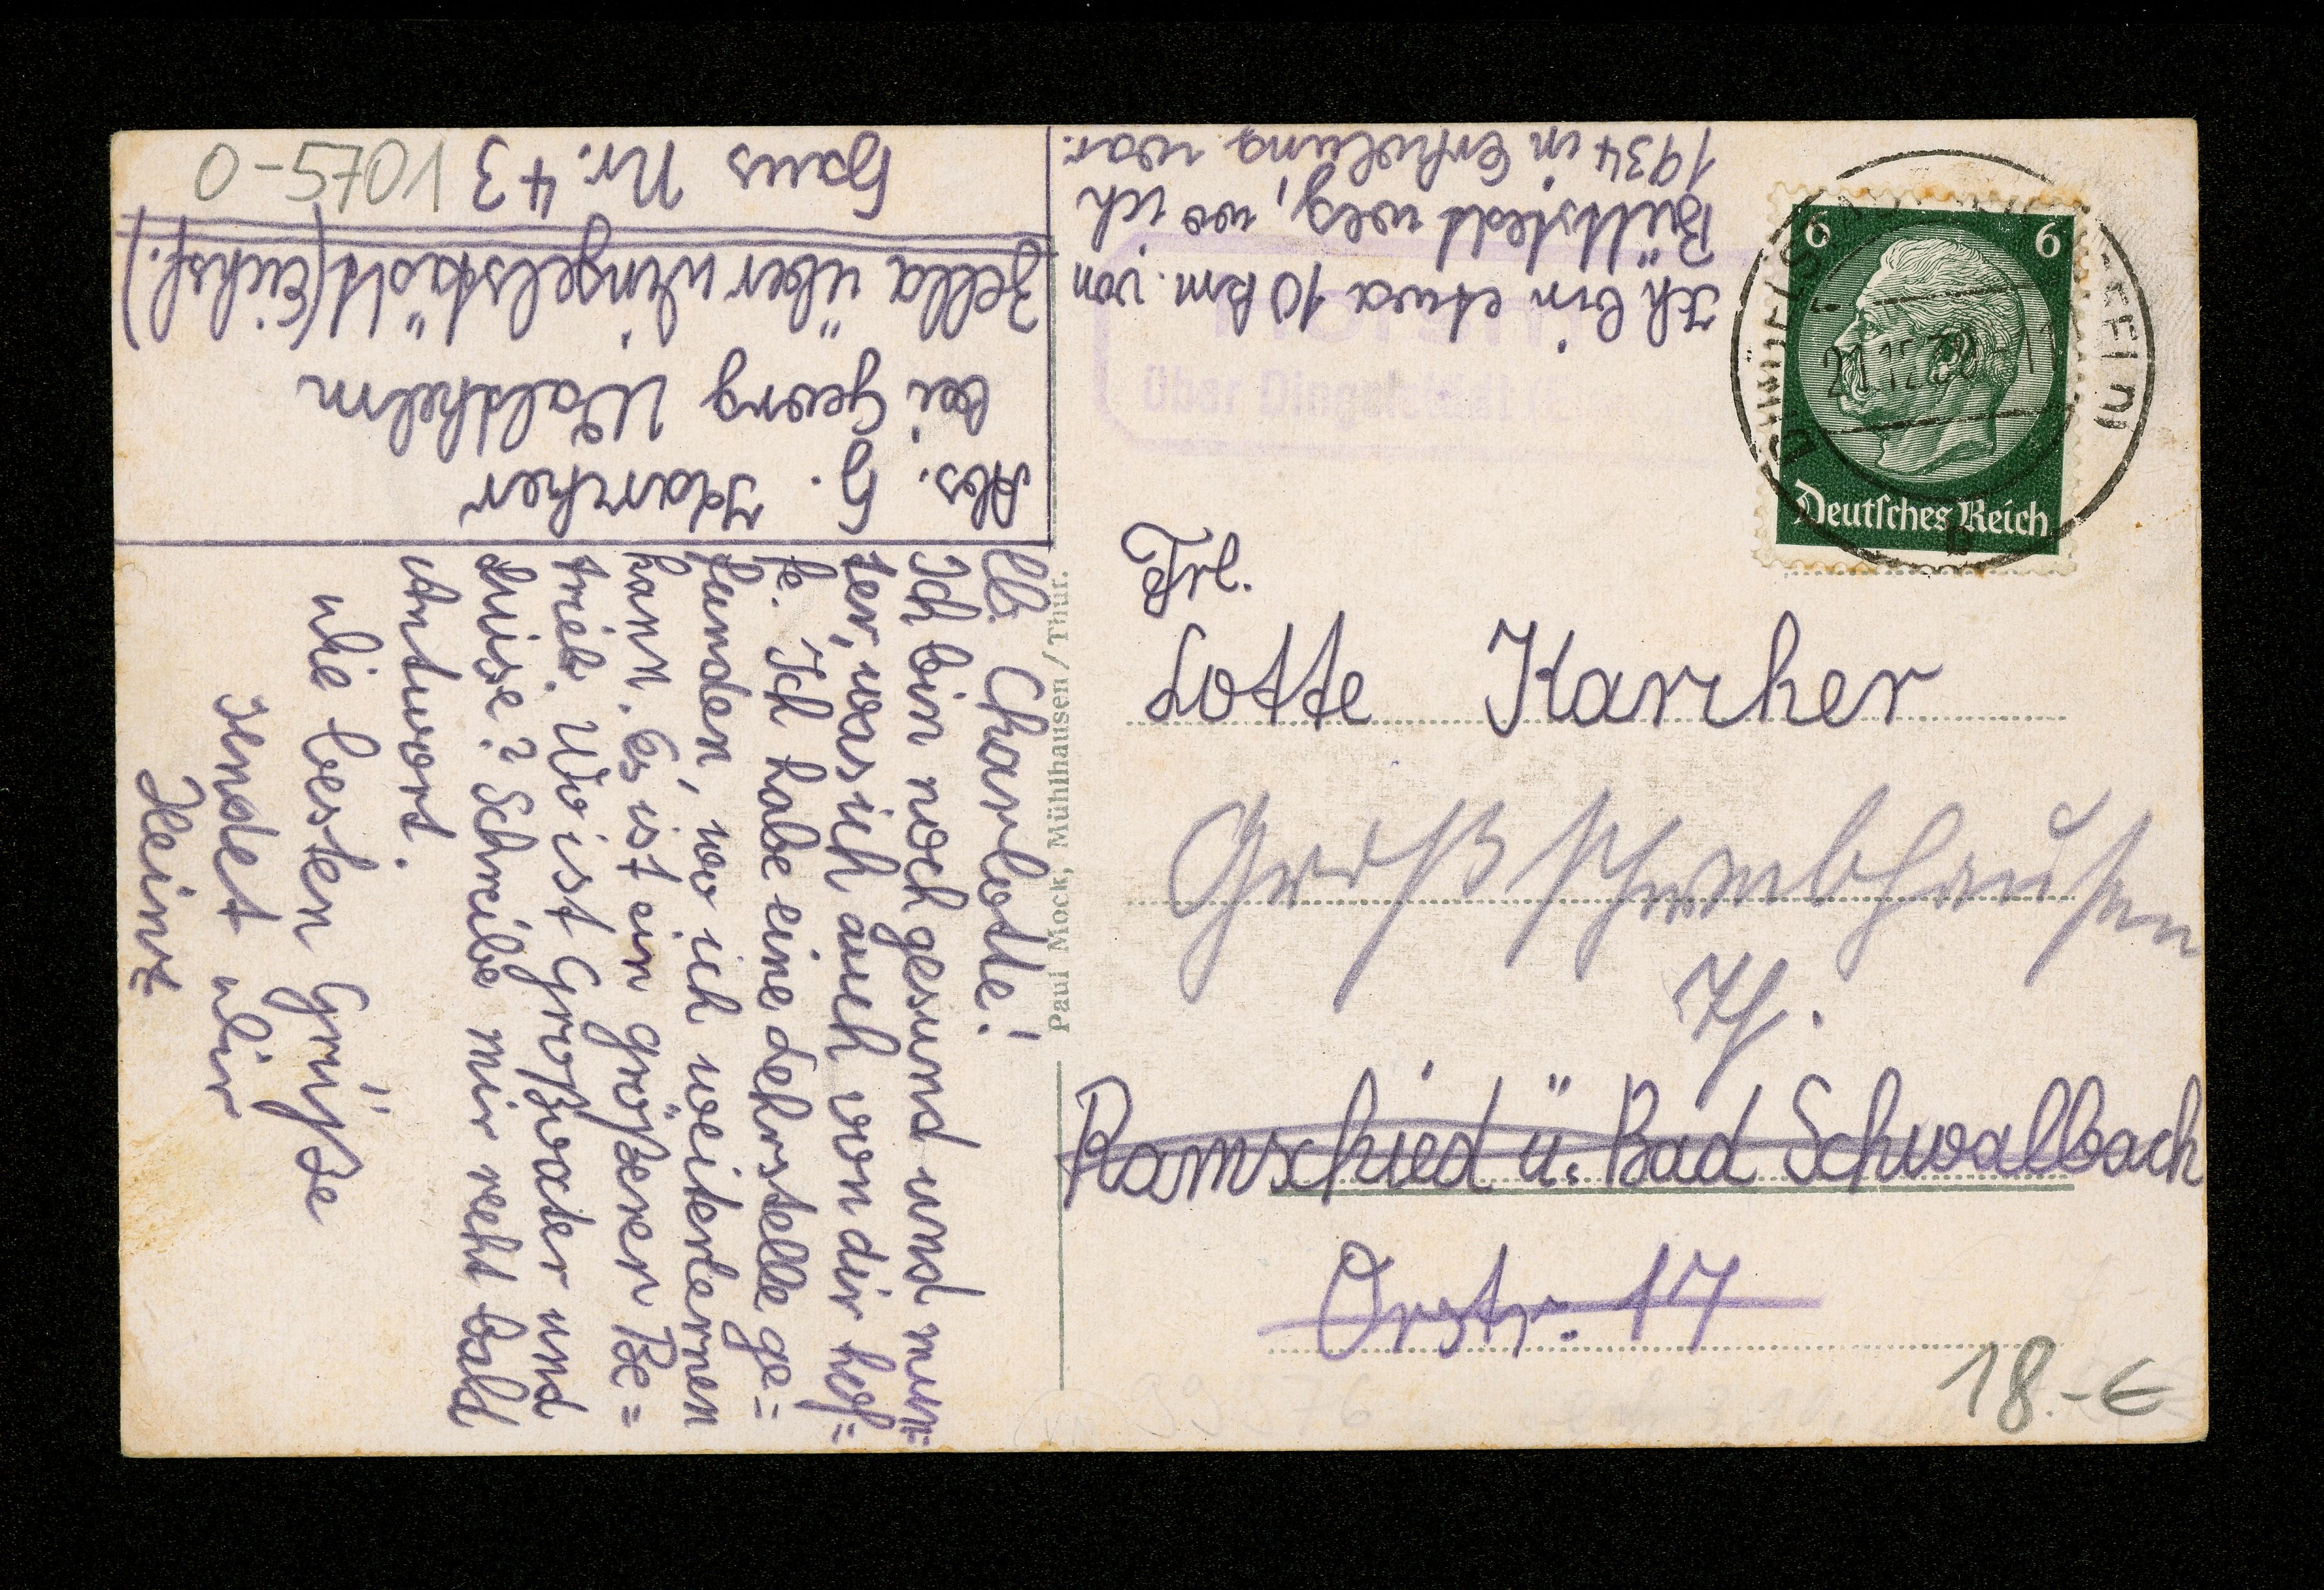 Abs. H. Karcher
bei Georg Waldhelm
Zella über Dingelstädt (Eichsf.)
Haus Nr. 43
0-5701
Ich bin etwa 10 km. von
Büttstedt weg, wo ich
1934 in Erholung war.
über Dingelstädt
6 6
Deutsches Reich
21.12.38-11
B
Lb. Charlotte!
Ich bin noch gesund und mun=
ter, was ich auch von dir hof=
fe. Ich habe eine Lehrstelle ge=
funden, wo ich weiterlernen
kann. Es ist ein größerer Be=
trieb. Wo ist Großvater und
Luise? Schreibe mir recht bald
Antwort.
Die besten Grüße
sendet dir
Heinz
Paul Mock, Mühlhausen/Thür.
Frl.
Lotte Karcher
Großschwabhausen
Th.
Ramschied ü. Bad Schwalbach
Orstr. 17
18.-€